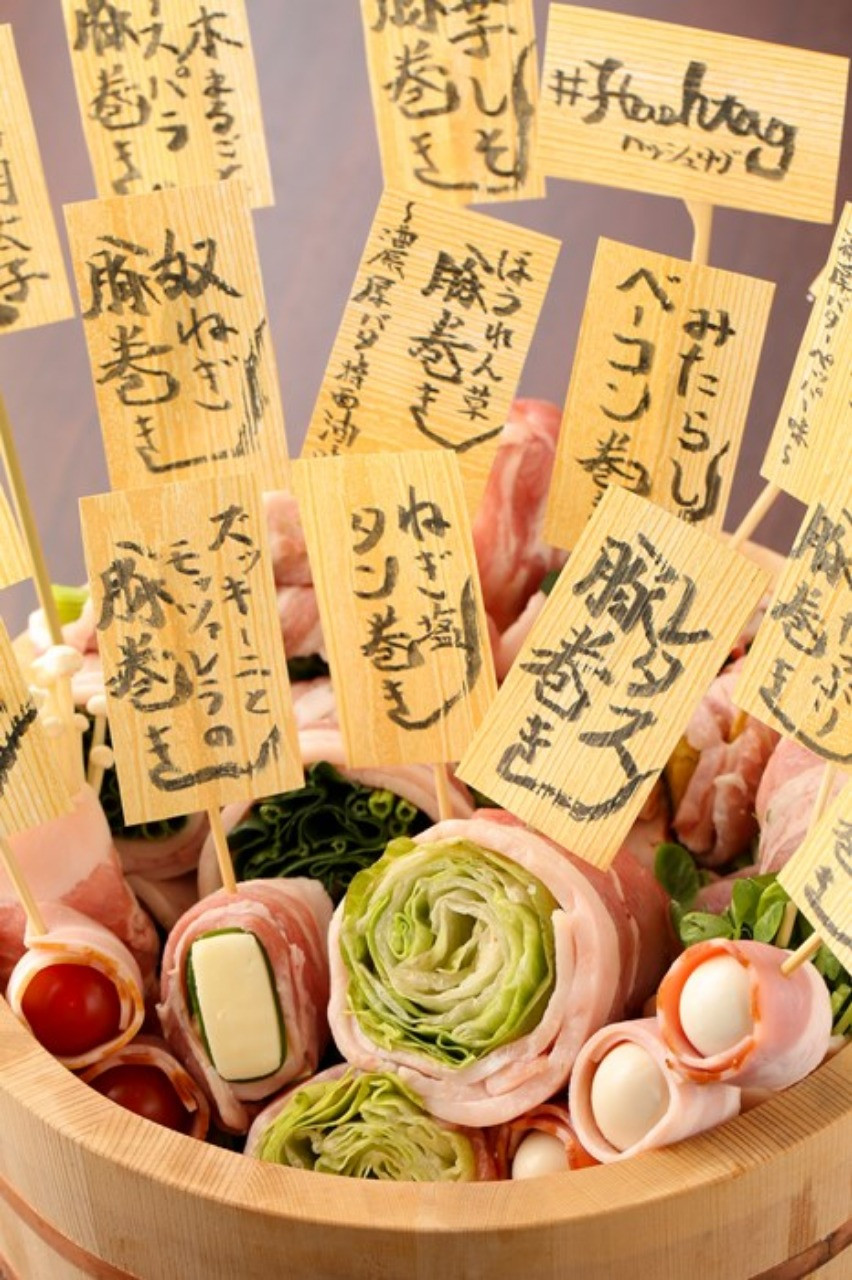 本まるごと
アスパラ
豚巻き
芋しそ
豚巻き
#Hashtag
ハッシュタグ
明太子
奴ねぎ
豚巻き
ほうれん草
豚巻き
〜濃厚バタ特西油
みたらし
ベーコン巻
濃厚バターペッパー味〜
ズッキーニと
モッツァレラの
豚巻き
ねぎ塩
タン巻き
レタス
豚巻き
豚巻き